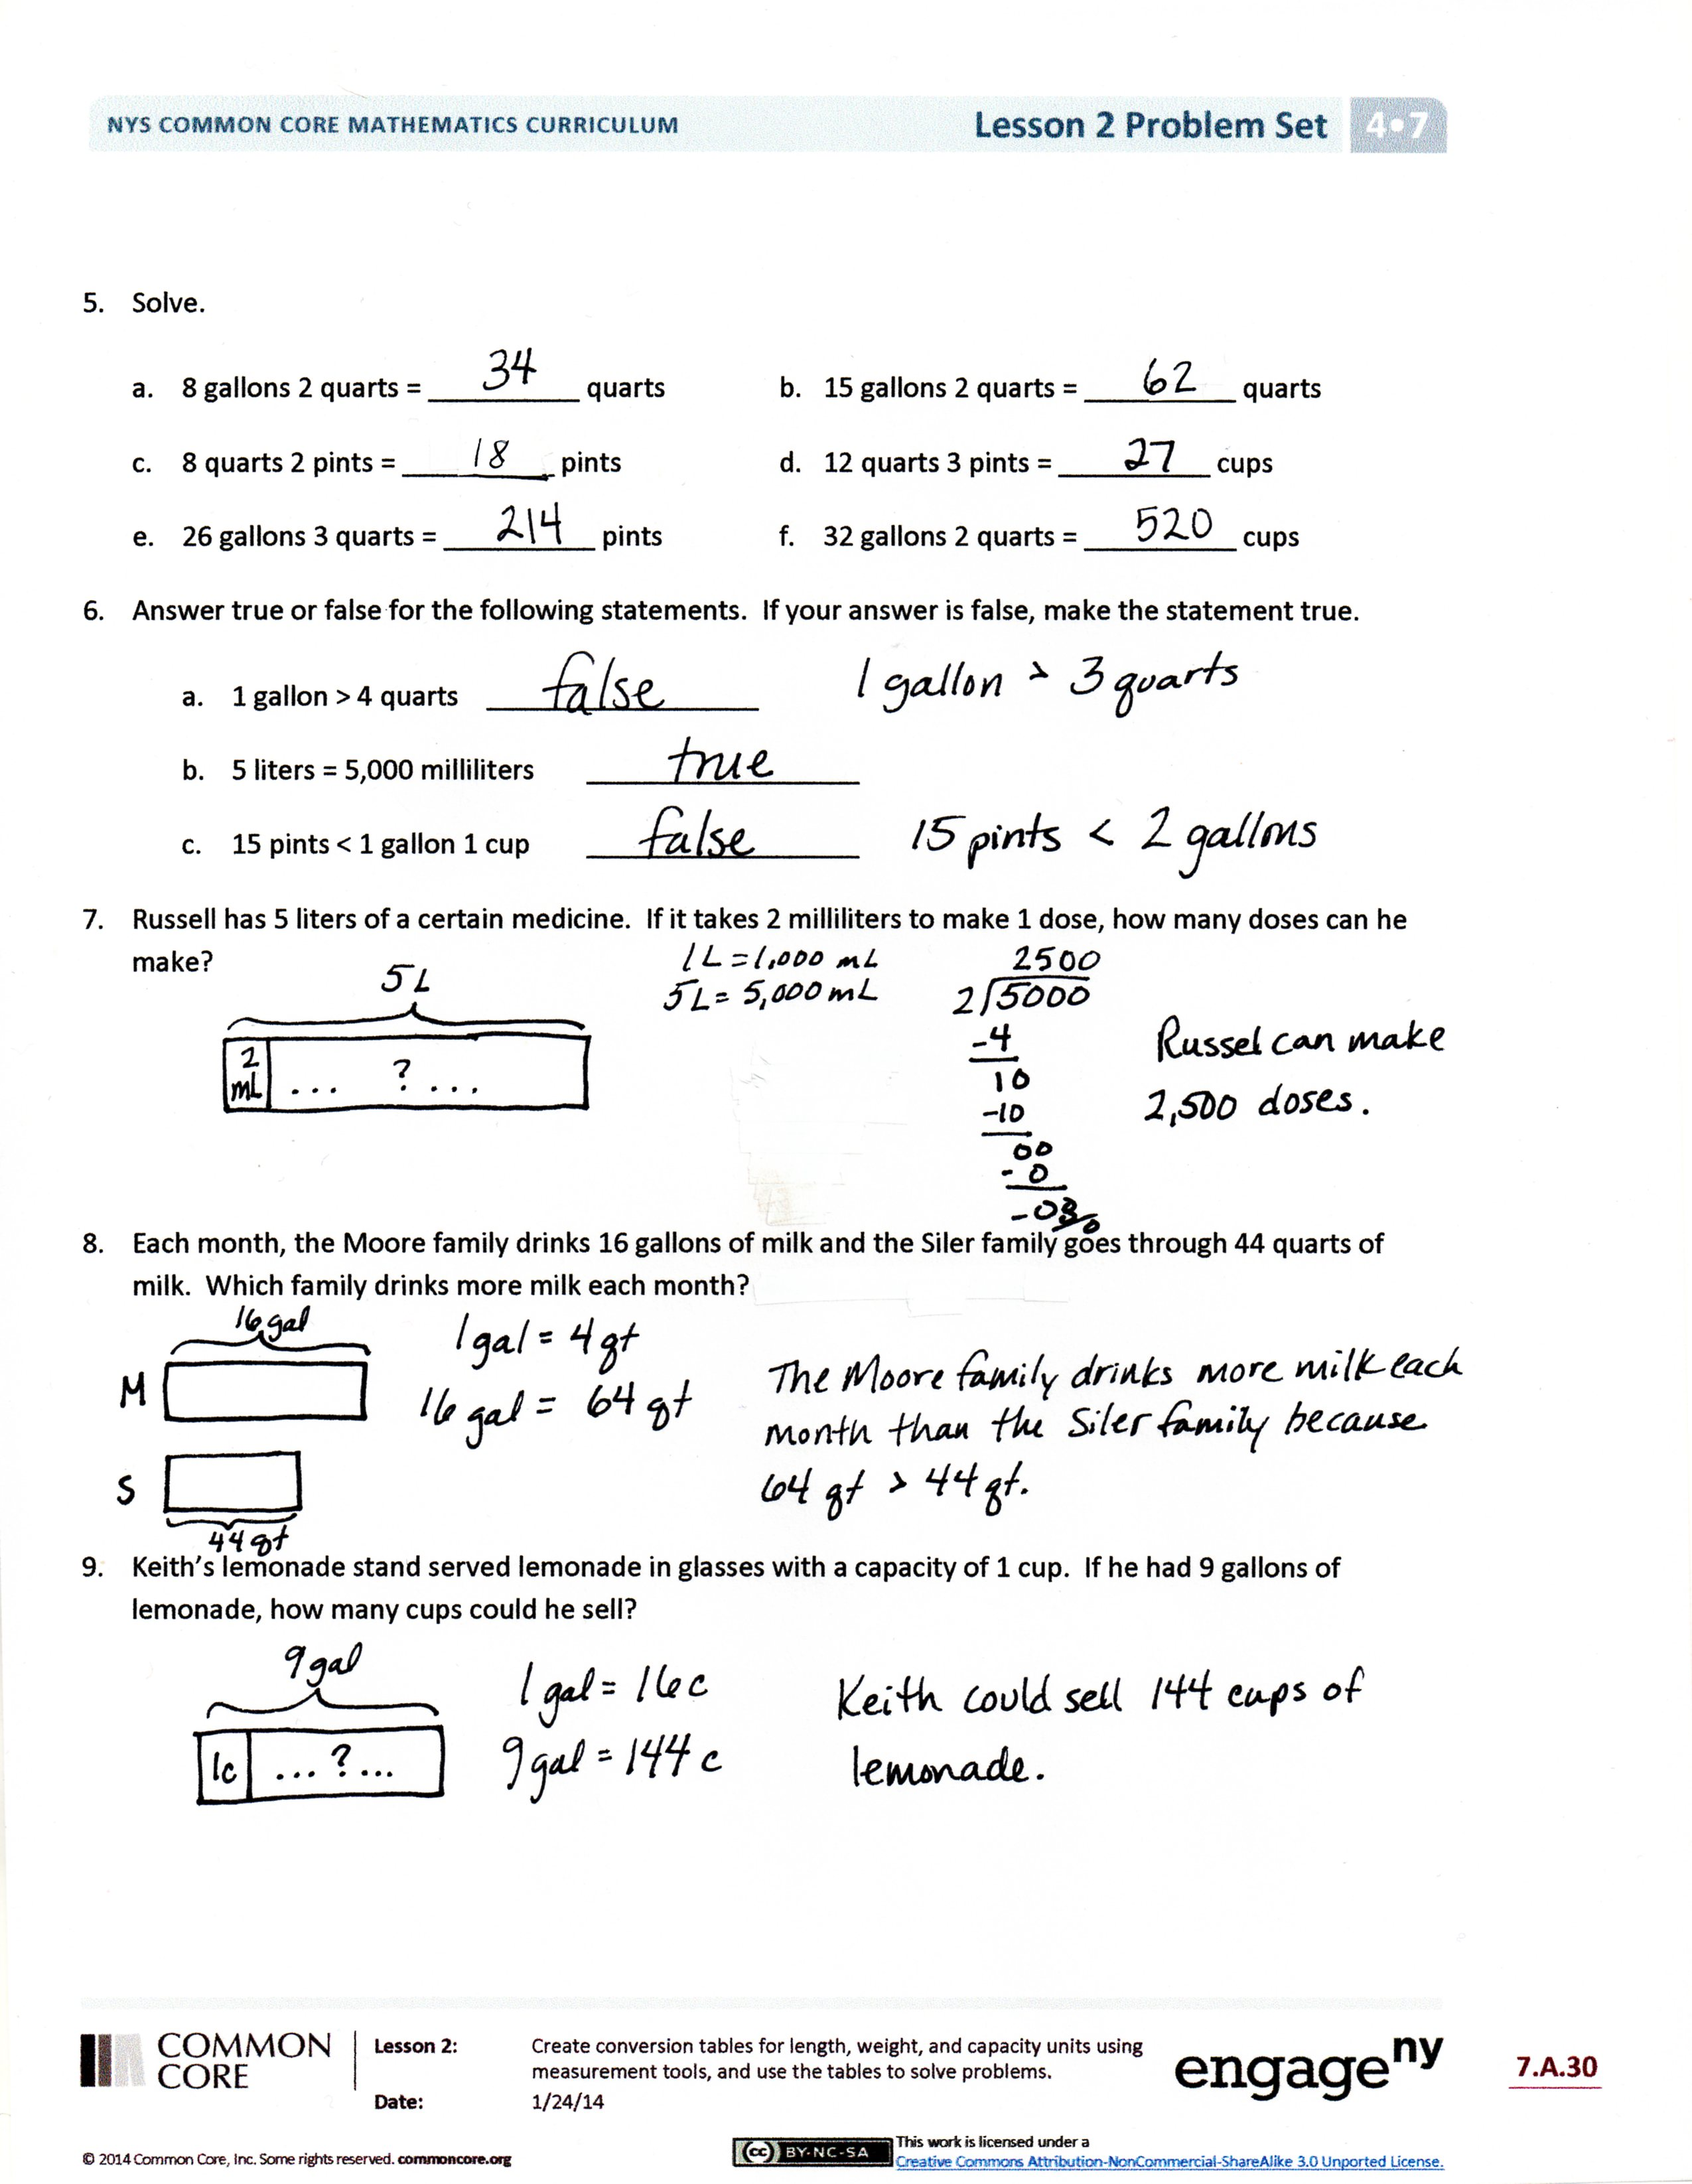 NYS COMMON CORE MATHEMATICS CURRICULUM Lesson 2 Problem Set 4•7
5. Solve.
a. 8 gallons 2 quarts = 34 quarts b. 15 gallons 2 quarts = 62 quarts
c. 8 quarts 2 pints = 18 pints d. 12 quarts 3 pints = 27 cups
e. 26 gallons 3 quarts = 214 pints f. 32 gallons 2 quarts = 520 cups
6. Answer true or false for the following statements. If your answer is false, make the statement true.
a. 1 gallon > 4 quarts false 1 gallon > 3 quarts
b. 5 liters = 5,000 milliliters true
c. 15 pints < 1 gallon 1 cup false 15 pints < 2 gallons
7. Russell has 5 liters of a certain medicine. If it takes 2 milliliters to make 1 dose, how many doses can he
make?
5L
2 mL ... ? ...
1L = 1,000 mL
5L = 5,000 mL
2500
2)5000
-4
10
-10
00
-0
-0
Russel can make
2,500 doses.
8. Each month, the Moore family drinks 16 gallons of milk and the Siler family goes through 44 quarts of
milk. Which family drinks more milk each month?
16 gal
M
S
44 qt
1 gal = 4 qt
16 gal = 64 qt
The Moore family drinks more milk each
month than the Siler family because
64 qt > 44 qt.
9. Keith's lemonade stand served lemonade in glasses with a capacity of 1 cup. If he had 9 gallons of
lemonade, how many cups could he sell?
9 gal
1c ... ? ...
1 gal = 16 c
9 gal = 144 c
Keith could sell 144 cups of
lemonade.
COMMON
CORE
Lesson 2: Create conversion tables for length, weight, and capacity units using
measurement tools, and use the tables to solve problems.
Date: 1/24/14
engage ny
7.A.30
© 2014 Common Core, Inc. Some rights reserved. commoncore.org
cc BY-NC-SA
This work is licensed under a
Creative Commons Attribution-NonCommercial-ShareAlike 3.0 Unported License.